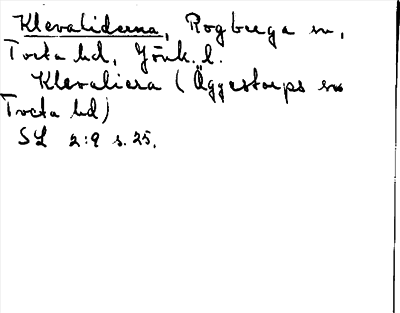 Klevaliderna, Rogberga sn,
Tveta hd, Jönk. l.
Klevaliera (Äggestorps sn
Tveta hd)
SL 2:9 s. 25.